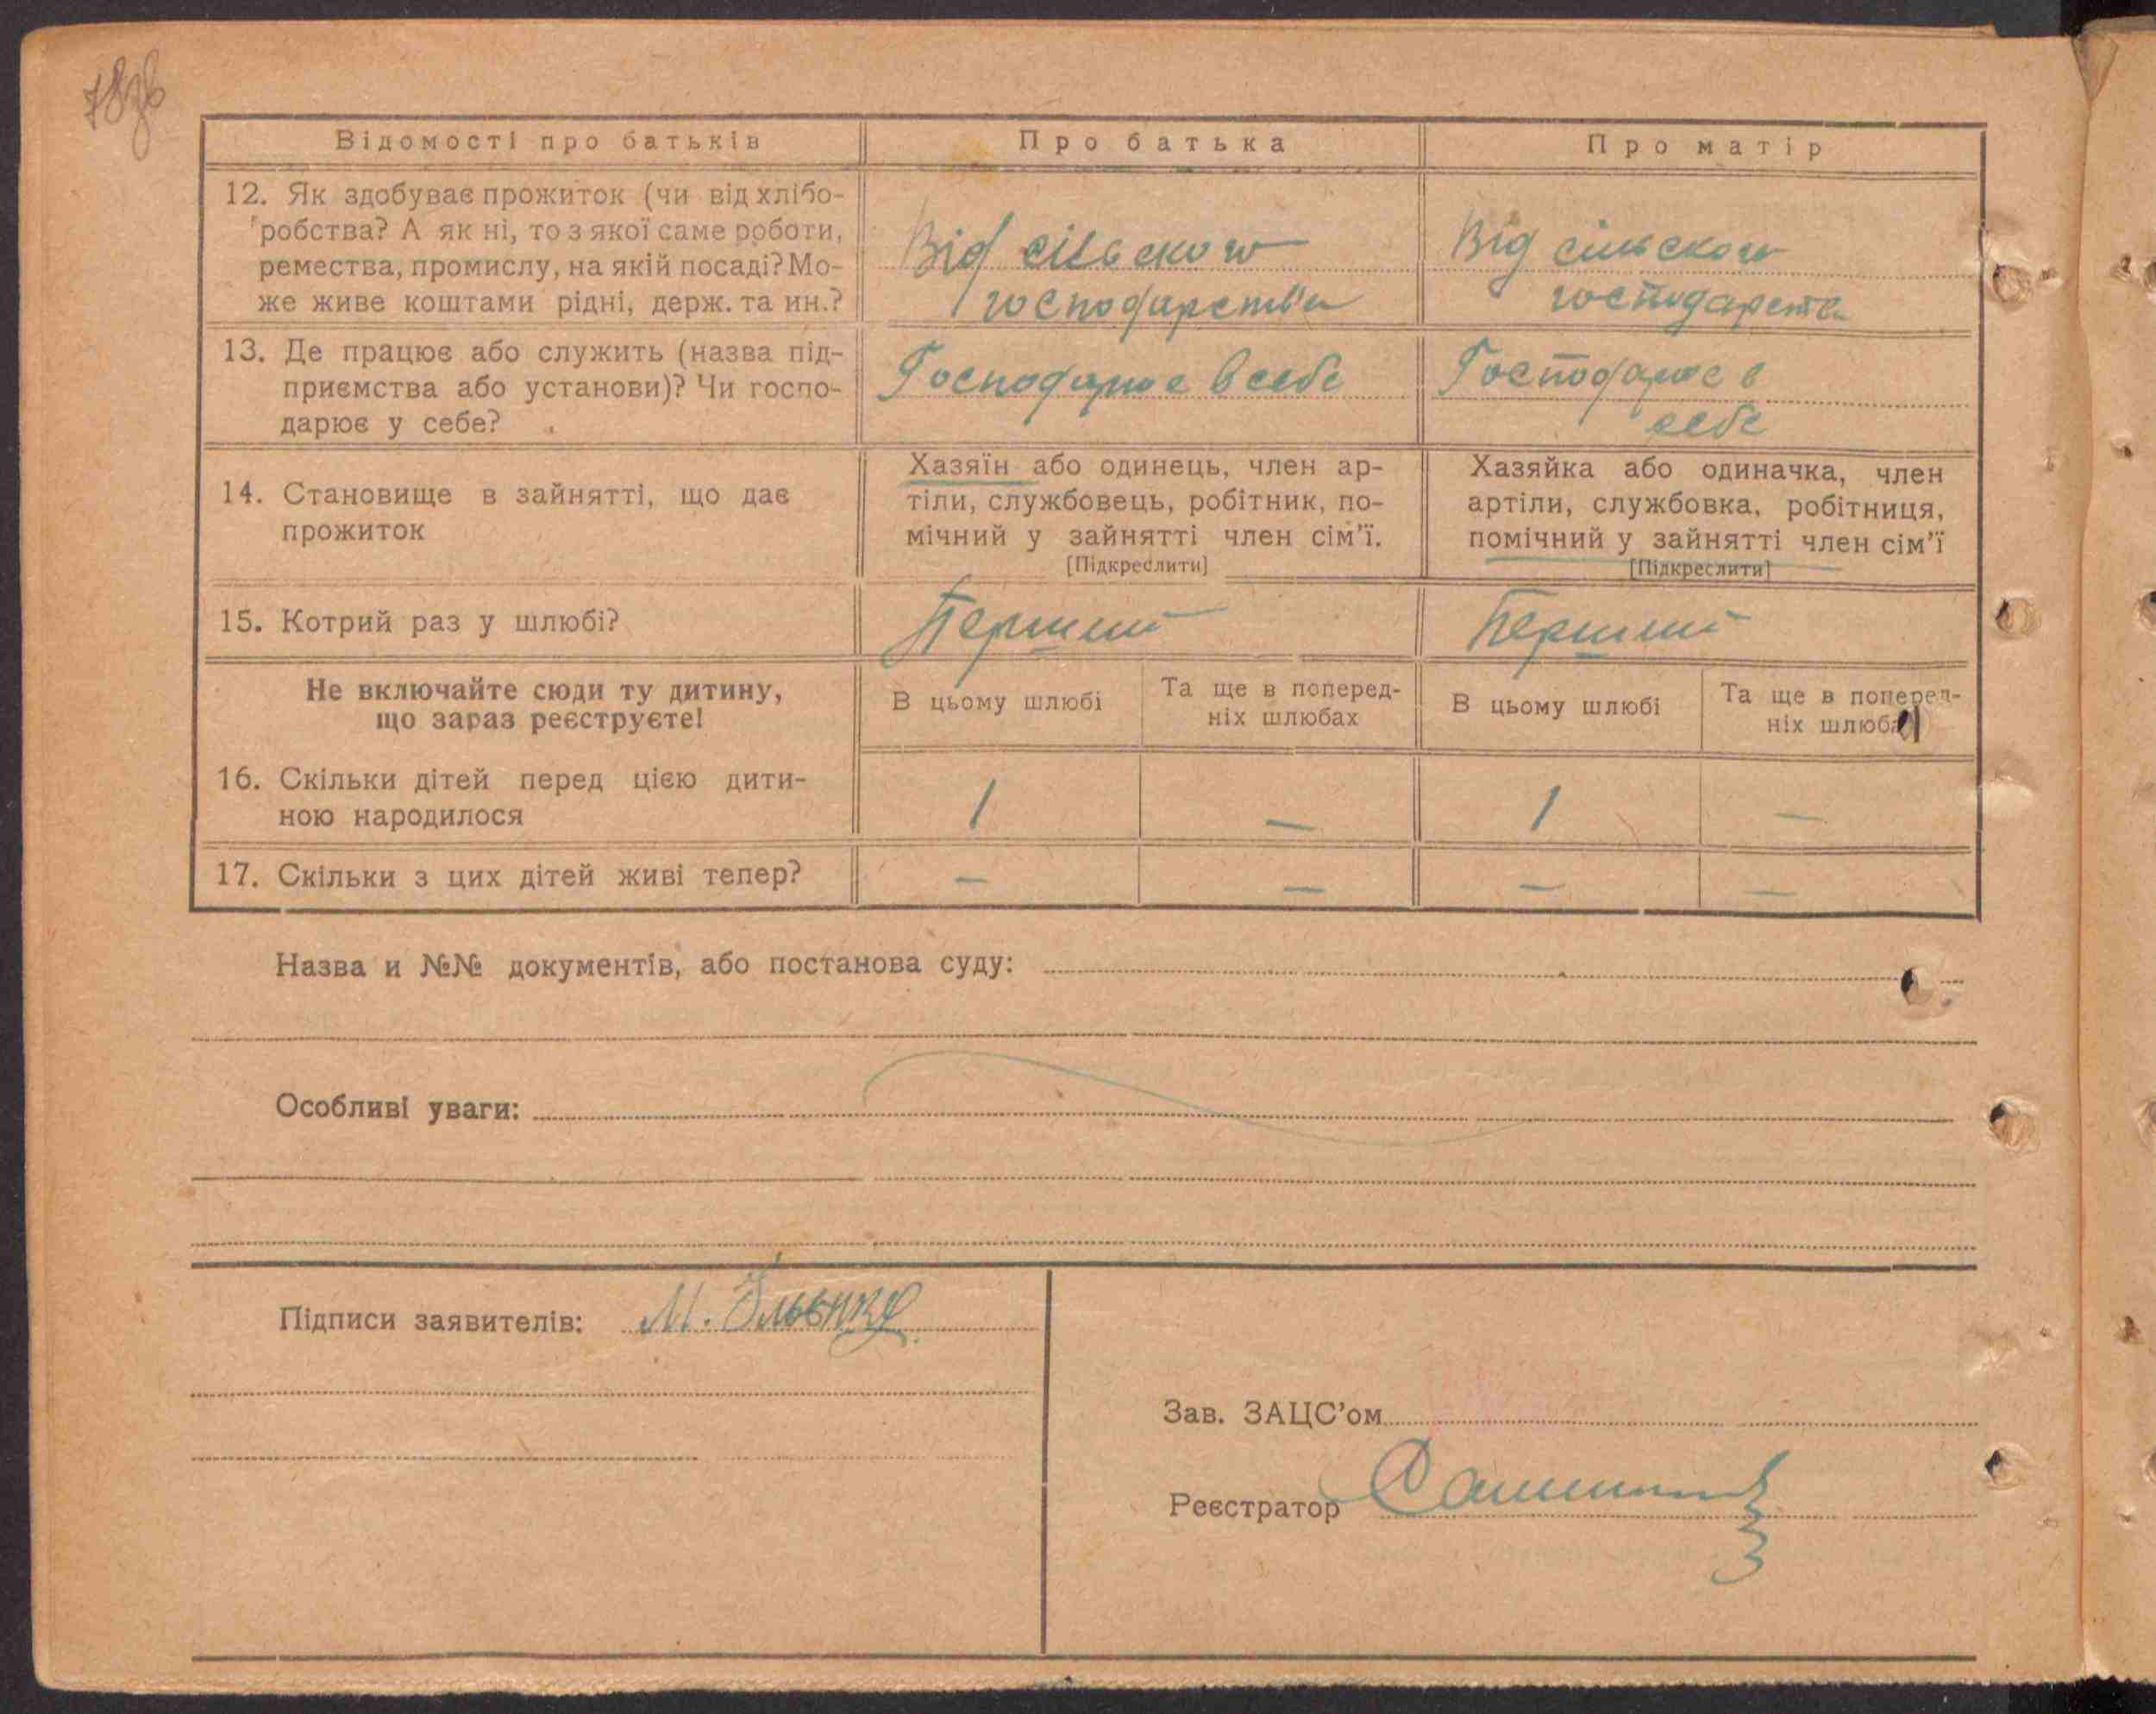 78зв
Відомості про батьків
Про батька
Про матір
12. Як здобуває прожиток (чи від хлібо-
робства? А як ні, то з якої саме роботи,
ремества, промислу, на якій посаді? Мо-
же живе коштами рідні, держ. та ин.?
Від сільского
господарства
Від сільского
господарства
13. Де працює або служить (назва під-
приємства або установи)? Чи госпо-
дарює у себе?
Господарює в себе
Господарює в
себе
14. Становище в зайнятті, що дає
прожиток
Хазяїн або одинець, член ар-
тіли, службовець, робітник, по-
мічний у зайнятті член сім'ї.
[Підкреслити]
Хазяйка або одиначка, член
артіли, службовка, робітниця,
помічний у зайнятті член сім'ї
[Підкреслити]
15. Котрий раз у шлюбі?
Перший
Перший
Не включайте сюди ту дитину,
що зараз реєструєте!
В цьому шлюбі
Та ще в поперед-
ніх шлюбах
В цьому шлюбі
Та ще в поперед-
ніх шлюба
16. Скільки дітей перед цією дити-
ною народилося
1
—
1
—
17. Скільки з цих дітей живі тепер?
—
—
—
—
Назва и №№ документів, або постанова суду:
Особливі уваги:
Підписи заявителів:
Зав. ЗАЦС'ом
Реєстратор